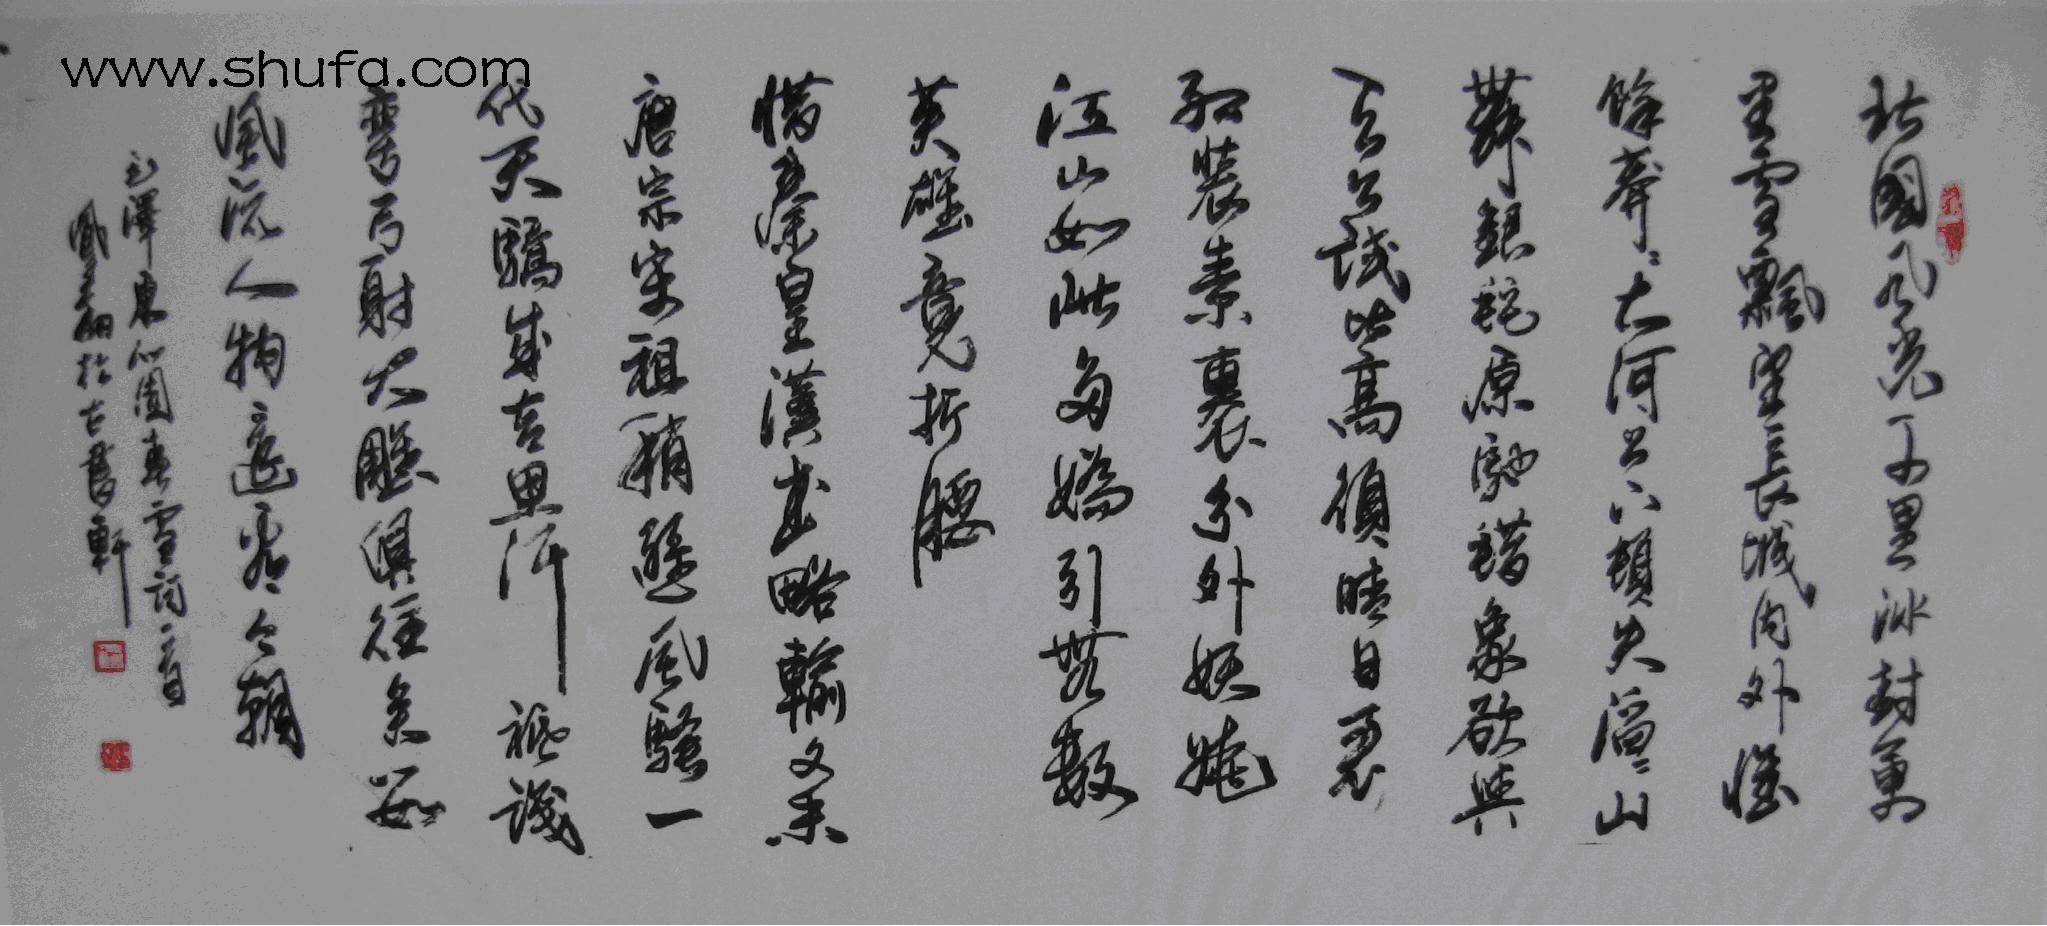 www.shufa.com
北國風光千里冰封萬
里雪飄望長城內外惟
餘莽々大河上下頓失滔々山
舞銀蛇原馳蠟象欲與
天公試比高須晴日看
紅裝素裹分外妖嬈
江山如此多嬌引無數
英雄竟折腰
惜秦皇漢武略輸文采
唐宗宋祖稍遜風騷一
代天驕成吉思汗祗識
彎弓射大雕俱往矣數
風流人物還看今朝
毛澤東沁園春雪詞一首
於古書軒